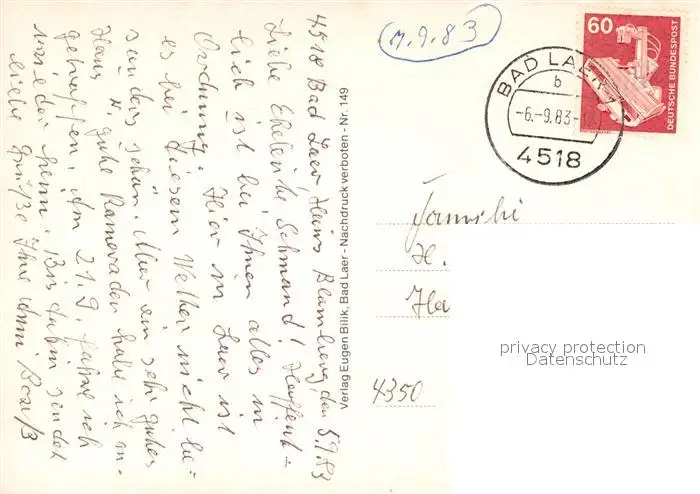 4518 Bad Laer Haus Blomberg, den 5.9.83
Liebe Eheleute Schmand! Hoffent-
lich ist bei Ihnen alles in
Ordnung. Hier in Laer ist
es bei diesem Wetter nicht be-
sonders schön. Aber ein sehr gutes
Haus u. gute Kameraden habe ich an-
getroffen. Am 21.9. fahre ich
wieder heim. Bis dahin sendet
liebe Grüße Ihre
Verlag Eugen Bilik, Bad Laer - Nachdruck verboten - Nr. 149
7.9.83
60
DEUTSCHE BUNDESPOST
BAD LAER 1
b
-6.-9.83-
4518
Familie
H.
Ha
4350
privacy protection
Datenschutz